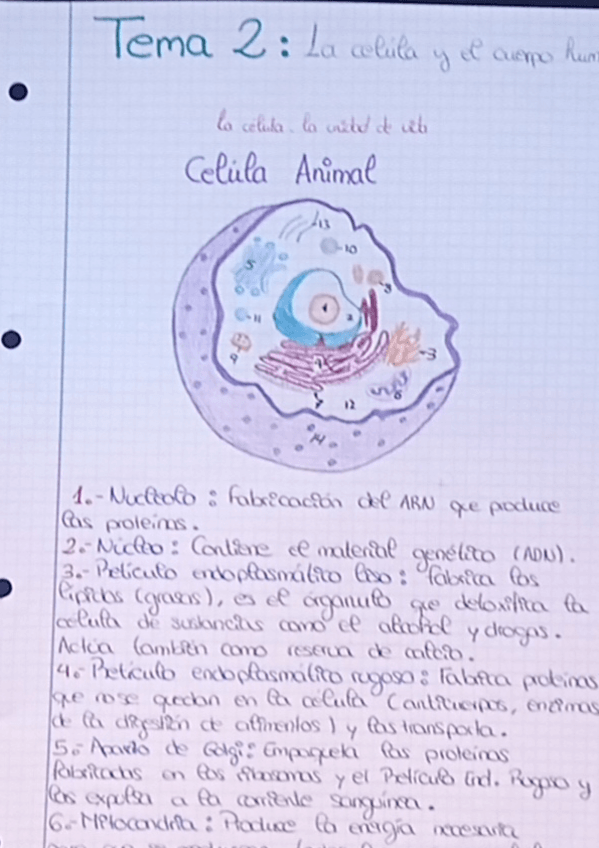 Tema 2: La celula y el cuerpo hum
la célula. la unidad de vida
Celúla Animal
13
10
5
8
11
1
2
9
3
7
6
12
14
1.- Nucleolo: Fabricación del ARN que produce
las proteinas.
2.- Nucleo: Contiene el material genético (ADN).
3.- Retículo endoplasmático liso: fabrica los
lípidos (grasas), es el organulo que detoxifica la
celula de sustancias como el alcohol y drogas.
Actúa también como reserva de calcio.
4.- Retículo endoplasmático rugoso: Fabrica proteinas
que no se quedan en la célula (anticuerpos, enzimas
de la digestión de alimentos) y las transporta.
5.- Aparato de Golgi: Empaqueta las proteinas
fabricadas en los ribosomas y el Retículo End. Rugoso y
los expulsa a la corriente sanguínea.
6.- Mitocondria: Produce la energía necesaria